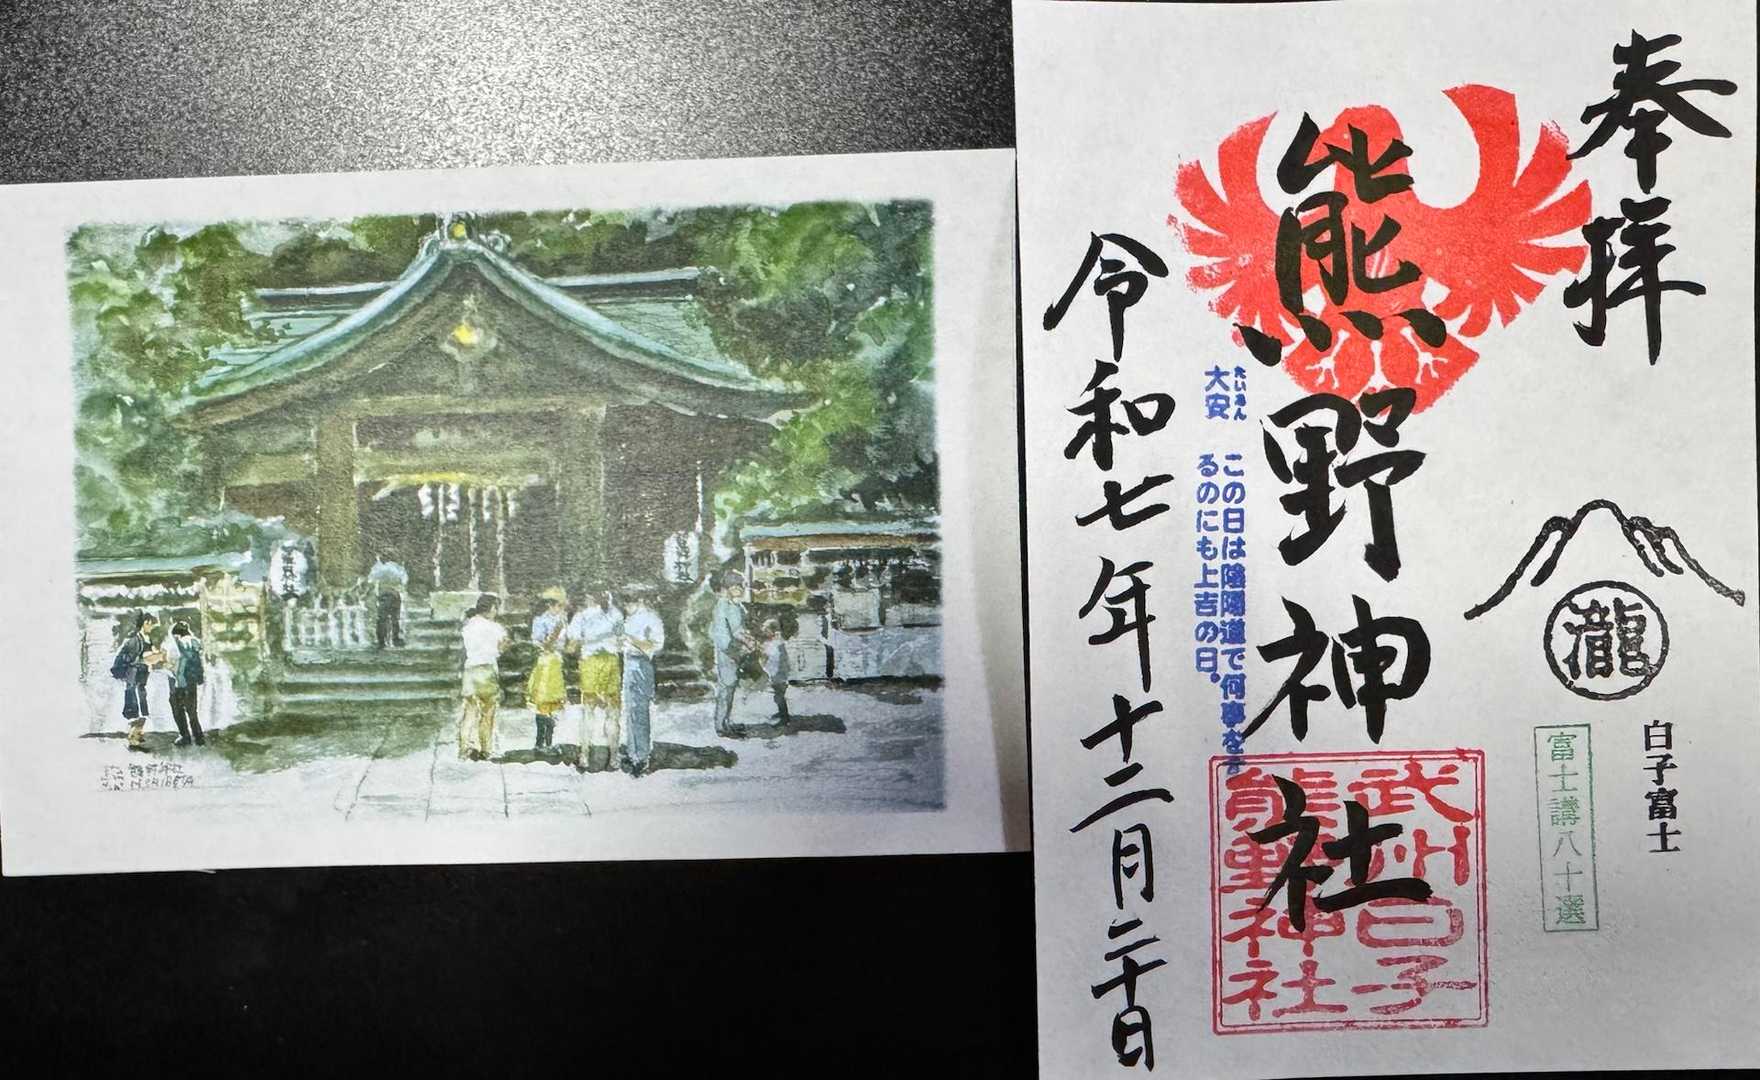 奉拝
熊野神社
令和七年十二月二十日
大安
たいあん
この日は陰陽道で何事を
るのにも上吉の日。
瀧
白子富士
富士講八十選
武州白子
熊野神社
熊野神社